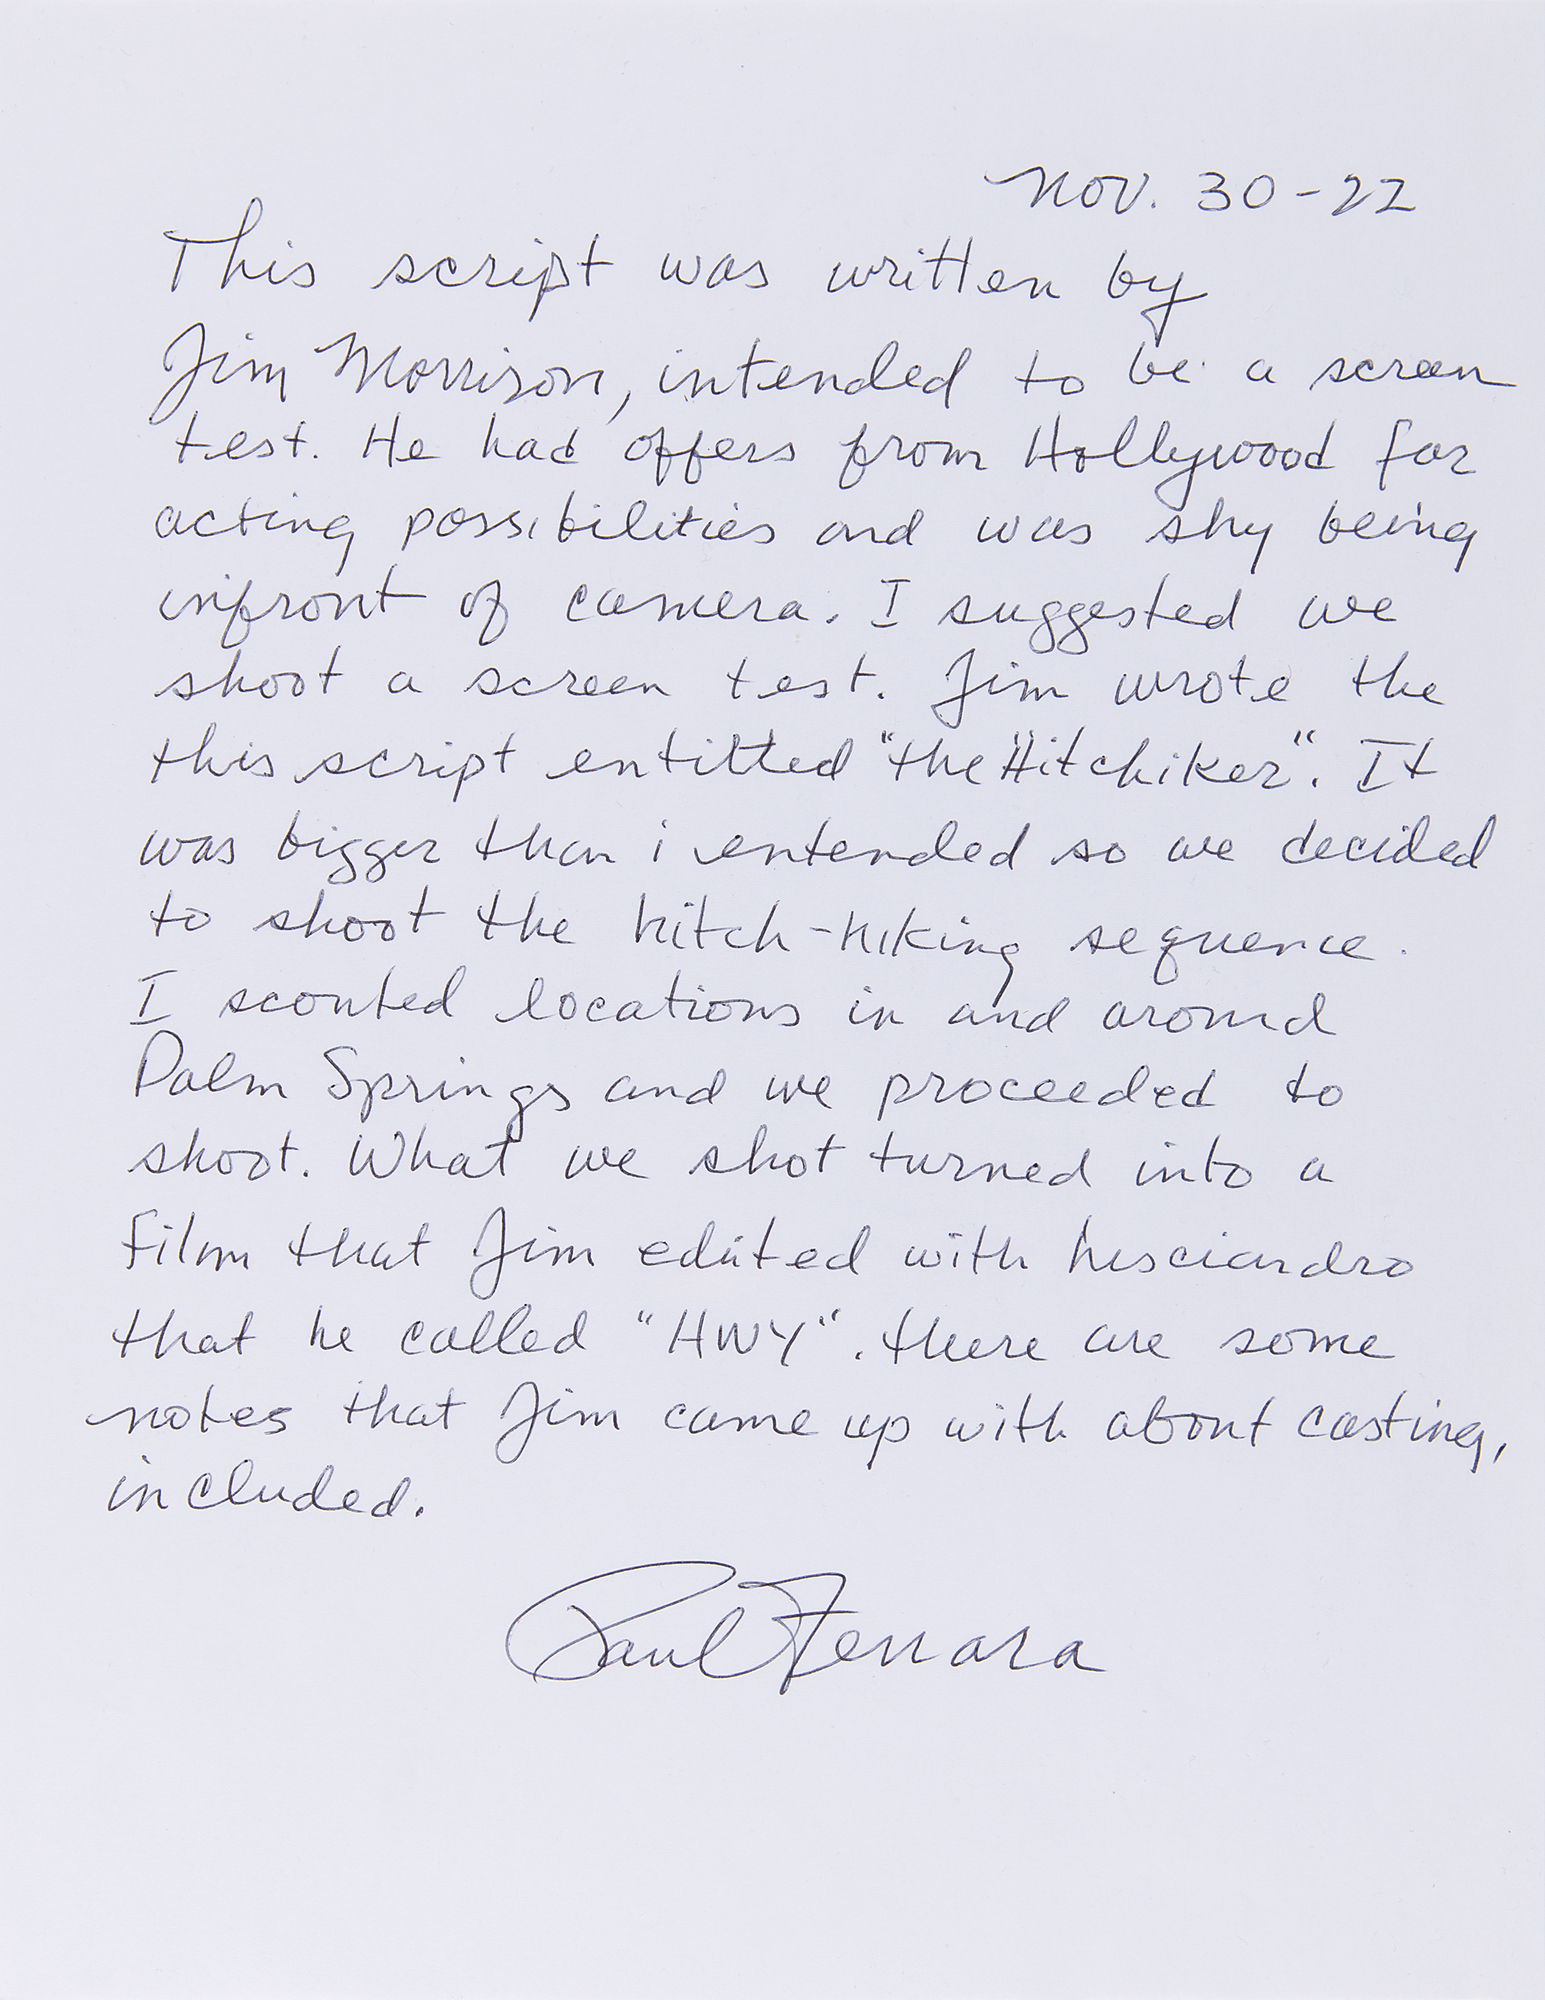 Nov. 30-22
This script was written by
Jim Morrison, intended to be a screen
test. He had offers from Hollywood for
acting possibilities and was shy being
infront of camera. I suggested we
shoot a screen test. Jim wrote the
this script entitted "the Hitchiker". It
was bigger than i entended so we decided
to shoot the hitch-hiking sequence.
I scouted locations in and around
Palm Springs and we proceeded to
shoot. What we shot turned into a
film that Jim edited with Lisciandro
that he called "HWY". there are some
notes that Jim came up with about casting,
included.
Paul Ferrara